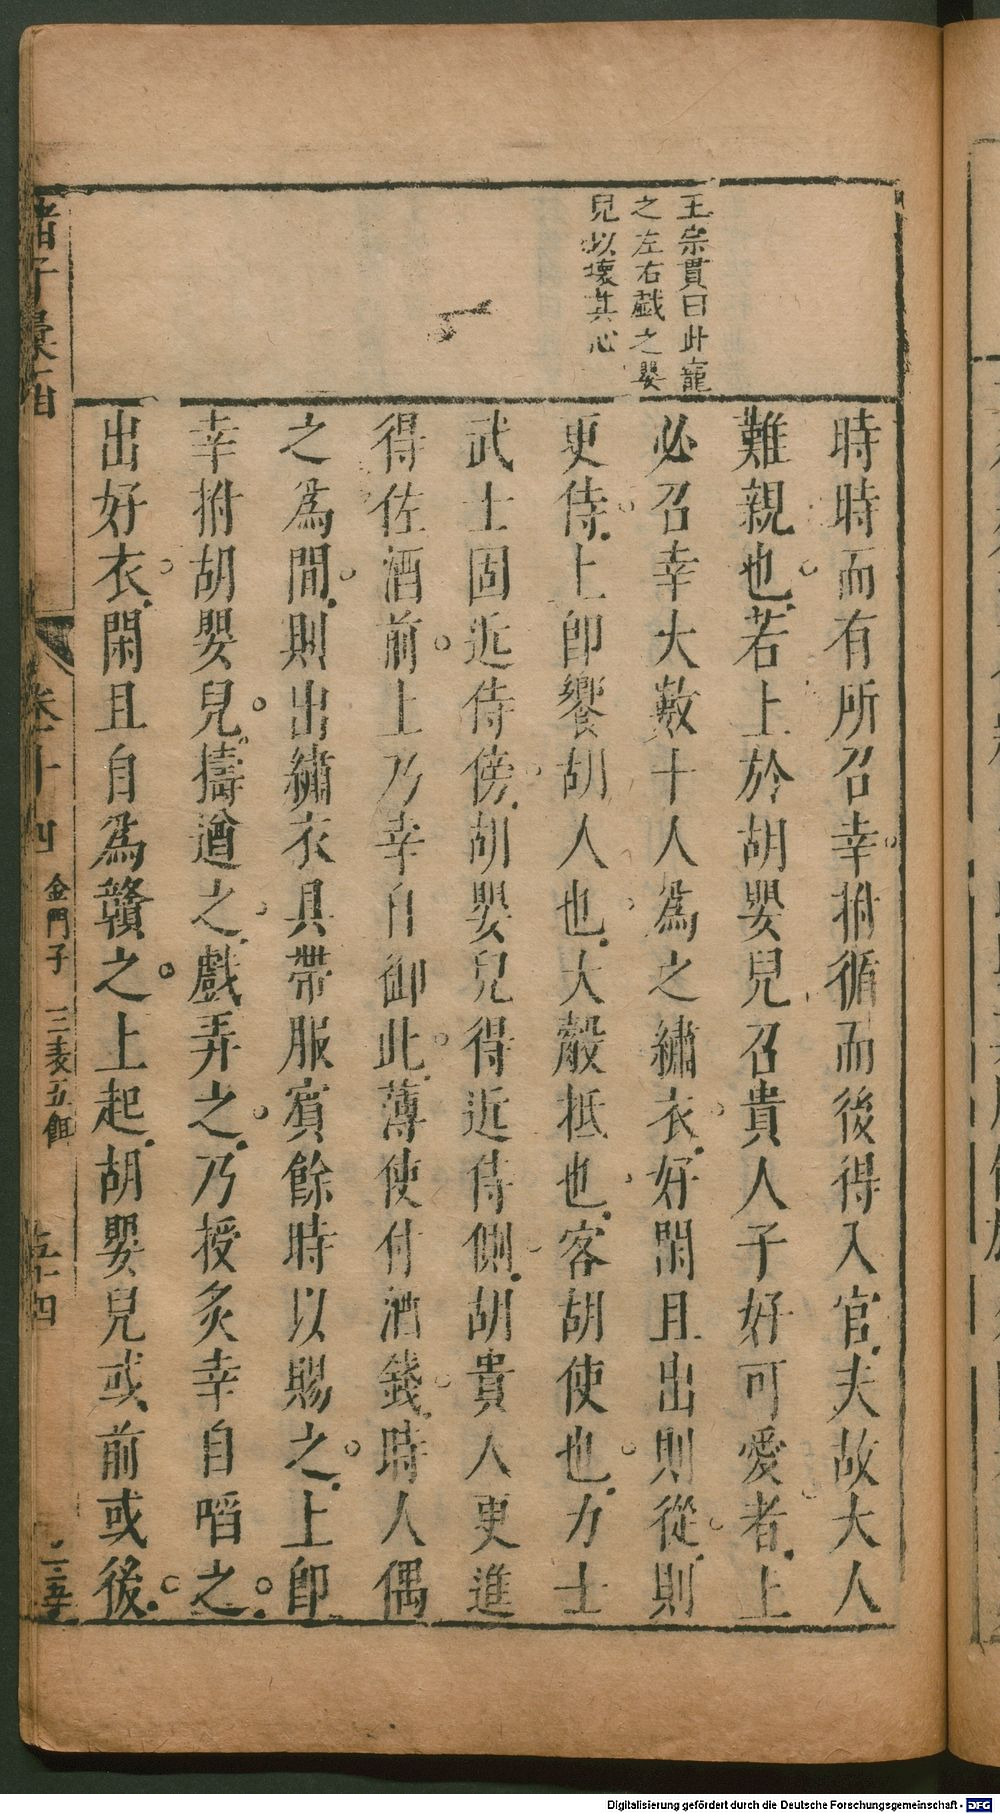 王宗貫曰此寵
之左右戲之嬰
兒以壞其心
時時而有所召幸拊循而後得入官夫故大人
難親也若上於胡嬰兒召貴人子好可愛者上
必召幸大數十人爲之繡衣好閑且出則從則
更侍上即饗胡人也大觳抵也客胡使也力士
武士固近侍傍胡嬰兒得近侍側胡貴人更進
得佐酒前上乃幸自御此薄使付酒錢時人偶
之爲間則出繡衣具帶服賓餘時以賜之上即
幸拊胡嬰兒擣遒之戲弄之乃授炙幸自啗之
出好衣閑且自爲贛之上起胡嬰兒或前或後
諸子彙函
卷十四
金門子 三表五餌
五十四
Digitalisierung gefördert durch die Deutsche Forschungsgemeinschaft - DFG